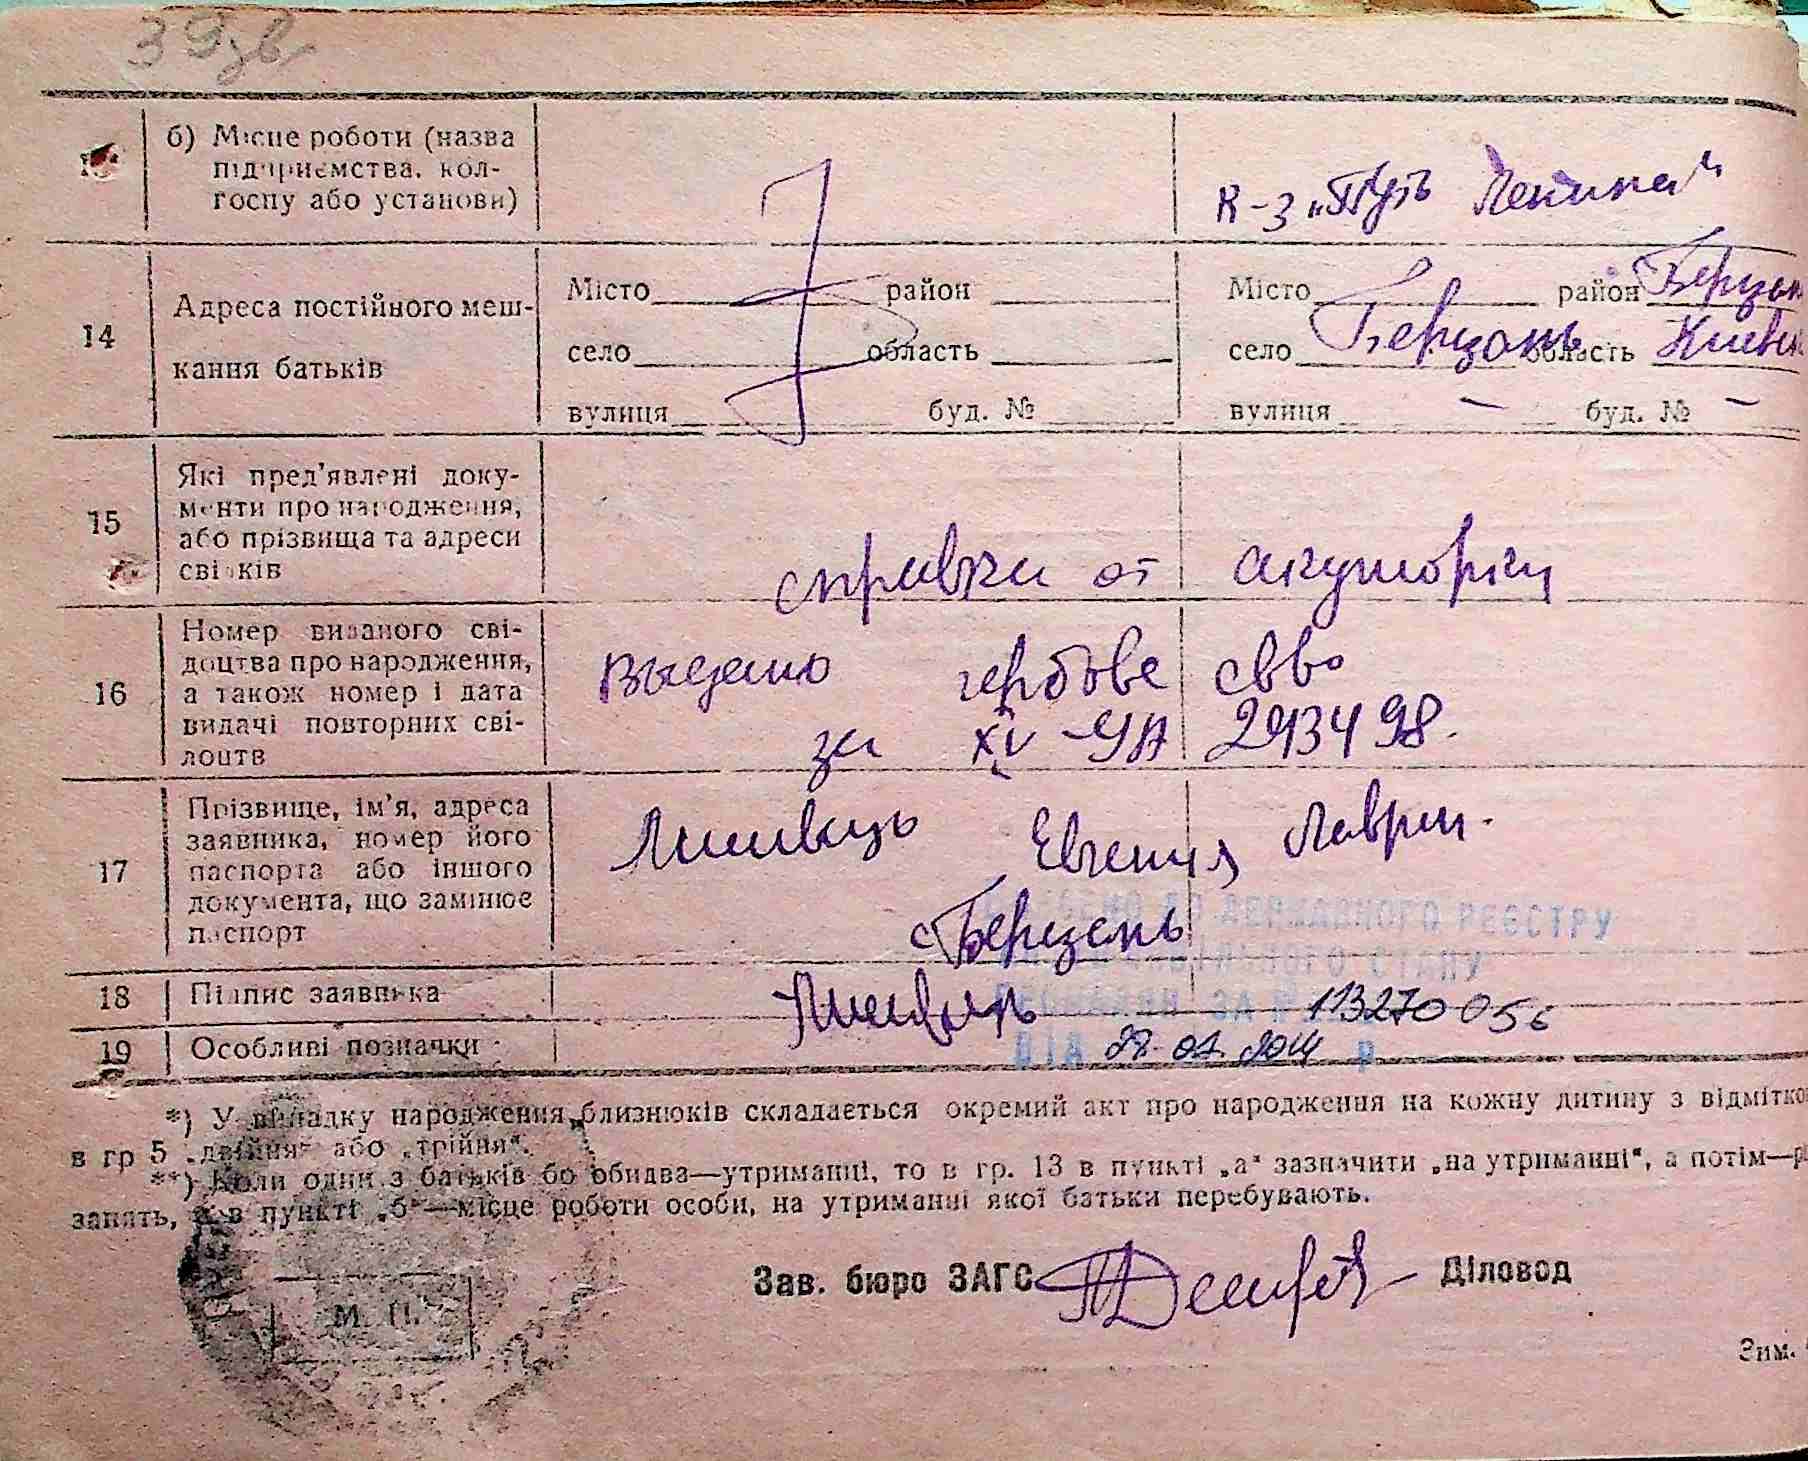 39зв
б) Місце роботи (назва
підприємства, кол-
госпу або установи)
к-з „Путь Ленина"
14
Адреса постійного меш-
кання батьків
Місто район
село область
вулиця буд. №
Місто район
село Березань область Киевск
вулиця – буд. № –
15
Які пред'явлені доку-
менти про народження,
або прізвища та адреси
свідків
справка от акушорки
16
Номер виданого сві-
доцтва про народження,
а також номер і дата
видачі повторних сві-
доцтв
Выдано гербове свво
за XV-УА 293498.
17
Прізвище, ім'я, адреса
заявника, номер його
паспорта або іншого
документа, що замінює
паспорт
Евгения Лаврен.
с Березань
18
Підпис заявника
19
Особливі позначки
ДО ДЕРЖАВНОГО РЕЄСТРУ
СТАНУ
ЗА № 113270056
ВІД р
*) У випадку народження близнюків складається окремий акт про народження на кожну дитину з відмітко
в гр 5 „двійня" або „трійня".
**) Коли один з батьків бо обидва—утриманці, то в гр. 13 в пункті „а" зазначити „на утриманні", а потім—р
занять, а в пункті „б"—місце роботи особи, на утриманні якої батьки перебувають.
Зав. бюро ЗАГС Діловод
М. П.
Зим.